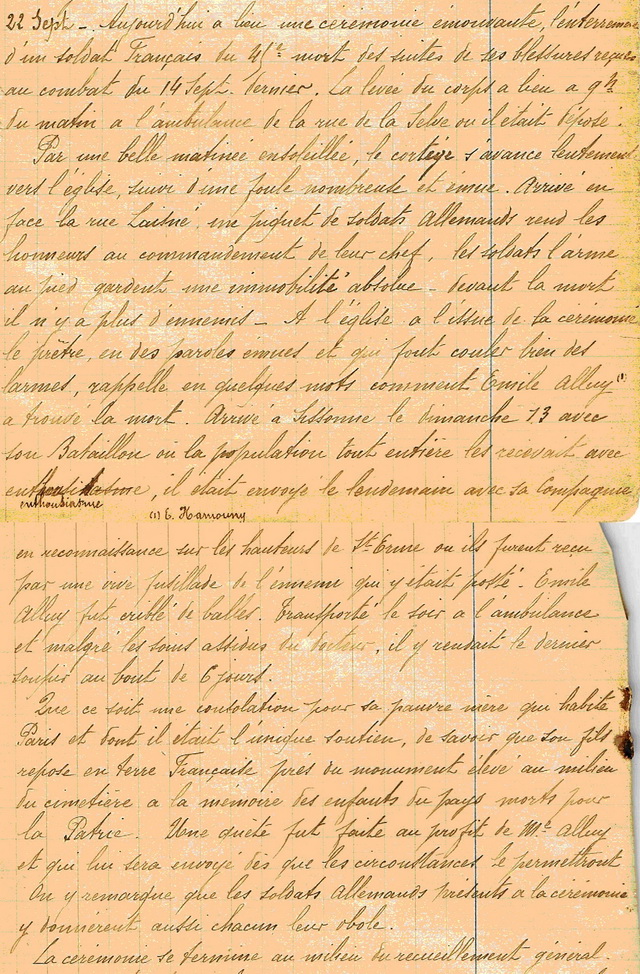 22 Sept - Aujourd'hui a lieu une cérémonie émouvante, l'enterrement
d'un soldat Français du mort des suites de ses blessures reçues
au combat du 14 Sept. dernier. La levée du corps a lieu a 9h
du matin a l'ambulance de la rue de la Selve ou il était déposé.
Par une belle matinée ensoleillée, le cortège s'avance lentement
vers l'église, suivi d'une foule nombreuse et émue. Arrivé en
face la rue Laisné, un piquet de soldats Allemands rend les
honneurs au commandement de leur chef, les soldats l'arme
au pied gardent une immobilité absolue - devant la mort
il n'y a plus d'ennemis - A l'église a l'issue de la cérémonie
le prêtre, en des paroles émues et qui font couler bien des
larmes, rappelle en quelques mots comment Emile Alluy (1)
a trouvé la mort. Arrivé a Sissonne le dimanche 13 avec
son Bataillon ou la population tout entière les recevait avec
enthousiasme, il était envoyé le lendemain avec sa Compagnie
enthousiasme
(1) E. Hamouny
en reconnaissance sur les hauteurs de St Erme ou ils furent reçu
par une vive fusillade de l'ennemi qui y était posté. Emile
Alluy fut criblé de balles. Transporté le soir a l'ambulance
et malgré les soins assidus du docteur, il y rendait le dernier
soupir au bout de 6 jours.
Que ce soit une consolation pour sa pauvre mère qui habite
Paris et dont il était l'unique soutien, de savoir que son fils
repose en terre Française près du monument élevé au milieu
du cimetière a la mémoire des enfants du pays morts pour
la Patrie. Une quête fut faite au profit de Me Alluy
et qui lui sera envoyé dès que les circonstances le permettront
On y remarque que les soldats Allemands présents a la cérémonie
y donnèrent aussi chacun leur obole.
La cérémonie se termine au milieu du recueillement général.